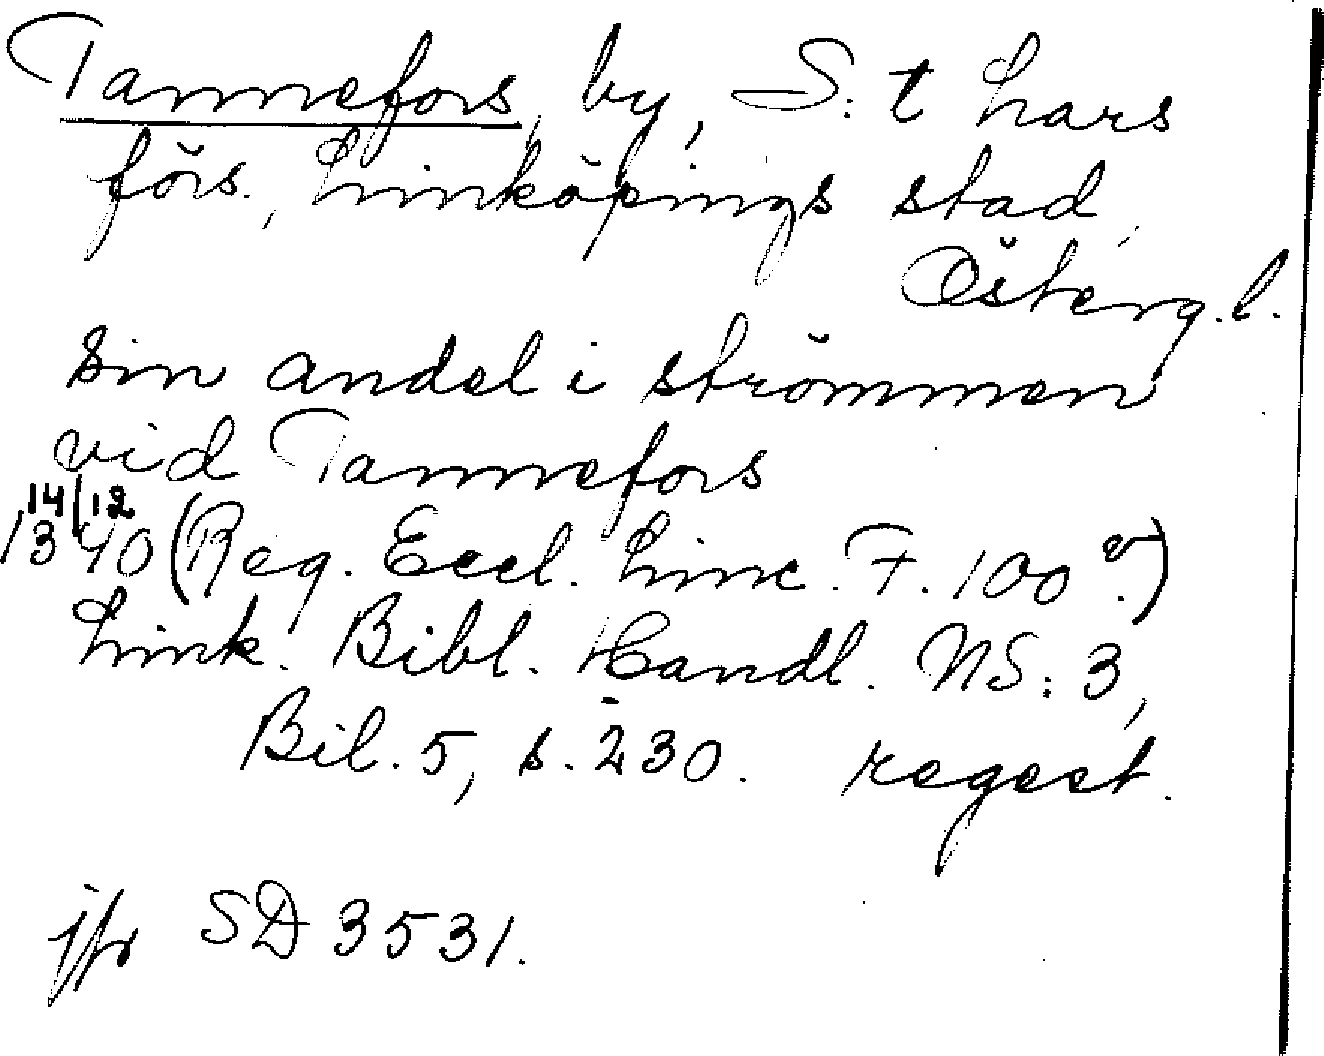 Tannefors, by, S:t Lars
förs., Linköpings stad,
Österg. l.
sin andel i strömmen
vid Tannefors
14/12
1340 (Reg. Eccl. Linc. F. 100 v.)
Link. Bibl. Handl. NS: 3,
Bil. 5, s. 230. regest.
jfr SD 3531.